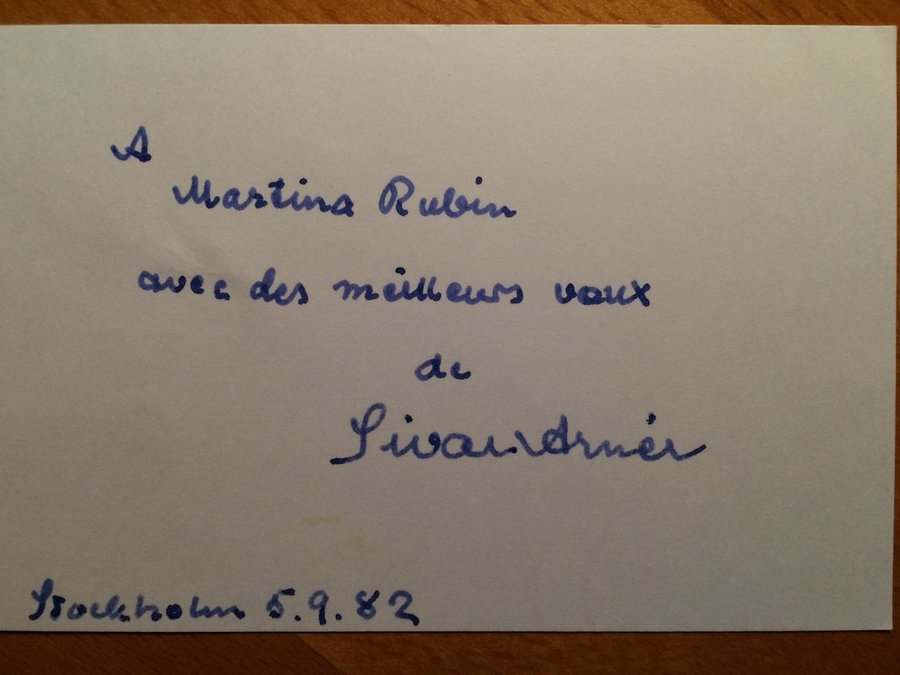 A
Martina Rubin
avec des meilleurs vœux
de
Sivar Arnér
Stockholm 5.9.82